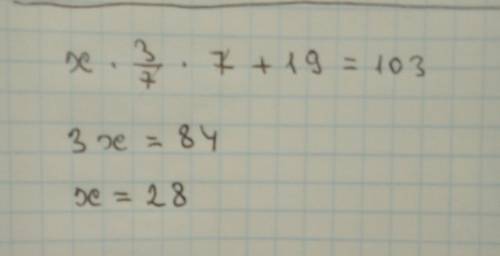 x · 3/7 · 7 + 19 = 103
3x = 84
x = 28